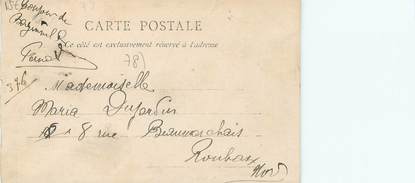 Bonjour de
CARTE POSTALE
Ce côté est exclusivement réservé à l'adresse
78)
376
Mademoiselle
Maria Dujardin
8 rue Beaumarchais
Roubaix
Nord